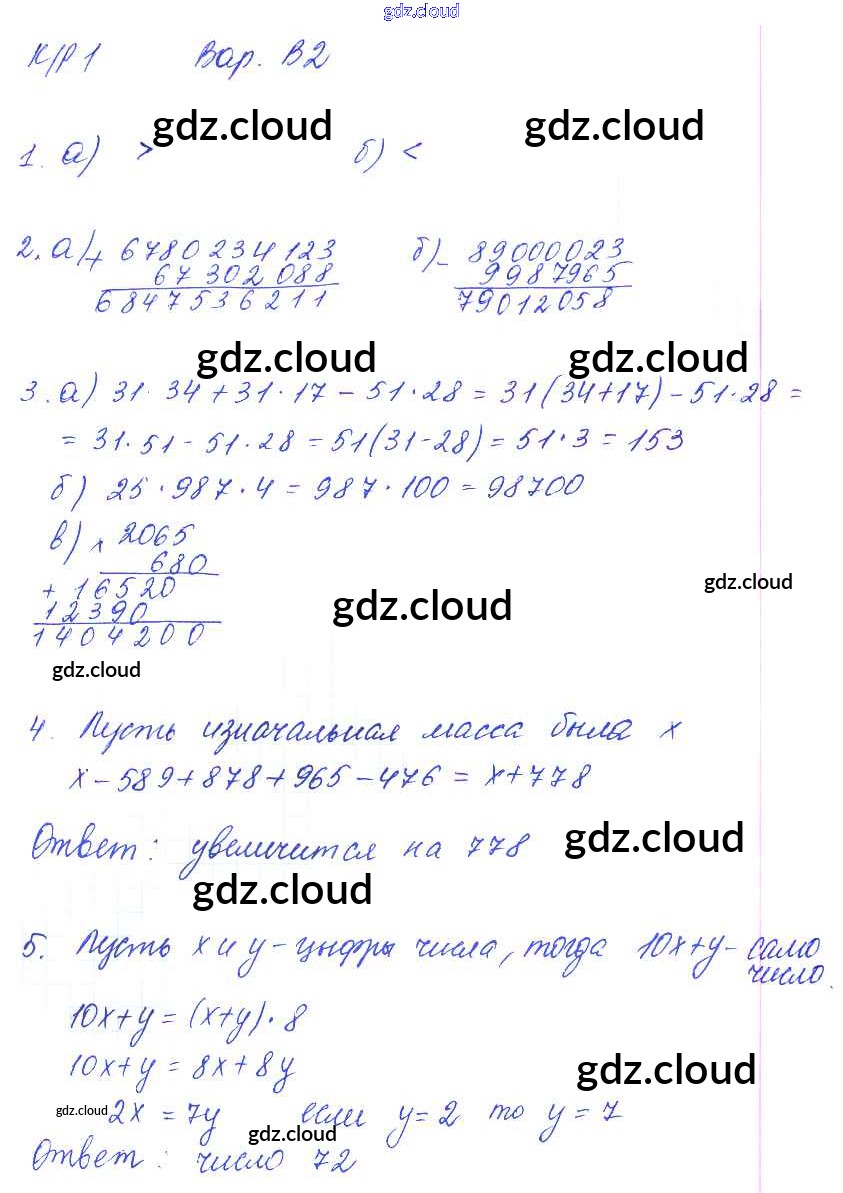 gdz.cloud
К/Р 1 Вар. В2
gdz.cloud gdz.cloud
1. а) > б) <
2. а) + 6780234123 б) - 89000023
67302088 9987965
6847536211 79012058
gdz.cloud gdz.cloud
3. а) 31 · 34 + 31 · 17 - 51 · 28 = 31(34+17) - 51 · 28 =
= 31 · 51 - 51 · 28 = 51(31-28) = 51 · 3 = 153
б) 25 · 987 · 4 = 987 · 100 = 98700
в) x 2065
680
+ 16520
12390
1404200
gdz.cloud gdz.cloud
gdz.cloud
4. Пусть изначальная масса была x
x - 589 + 878 + 965 - 476 = x + 778
Ответ: увеличится на 778
gdz.cloud
gdz.cloud
5. Пусть x и y - цыфры числа, тогда 10x+y - само
число.
10x+y = (x+y) · 8
10x+y = 8x+8y
gdz.cloud
gdz.cloud 2x = 7y если y=2 то y=7
gdz.cloud
Ответ: число 72